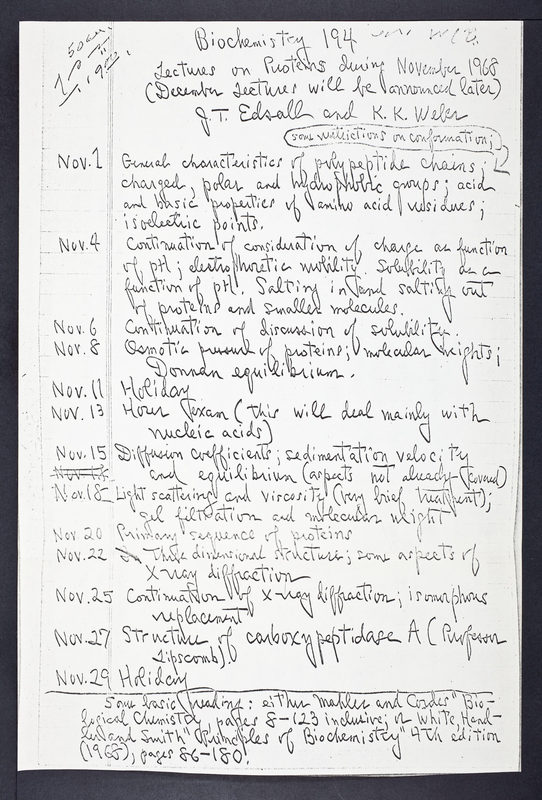 50 cc.
Biochemistry 194
Lectures on Proteins during November 1968
(December lectures will be announced later)
J.T. Edsall and K.K. Weber
some restrictions on conformation;
Nov. 1 General characteristics of polypeptide chains;
charged, polar and hydrophobic groups; acid
and basic properties of amino acid residues;
isoelectric points.
Nov. 4 Continuation of consideration of charge as function
of pH; electrophoretic mobility. Solubility as a
function of pH. Salting in and salting out
of proteins and smaller molecules.
Nov. 6 Continuation of discussion of solubility.
Nov. 8 Osmotic pressure of proteins; molecular weights;
Donnan equilibrium.
Nov. 11 Holiday
Nov. 13 Hour exam (this will deal mainly with
nucleic acids)
Nov. 15 Diffusion coefficients; sedimentation velocity
and equilibrium (aspects not already covered)
Nov. 18 Light scattering and viscosity (very brief treatment);
gel filtration and molecular weight
Nov 20 Primary sequence of proteins
Nov. 22 Three dimensional structure; some aspects of
X-ray diffraction
Nov. 25 Continuation of X-ray diffraction; isomorphous
replacement
Nov. 27 Structure of carboxypeptidase A (Professor
Lipscomb)
Nov. 29 Holiday
Some basic reading: either Mahler and Cordes "Bio-
logical Chemistry, pages 8-123 inclusive; or White, Hand-
ler and Smith "Principles of Biochemistry" 4th edition
(1968), pages 86-180.